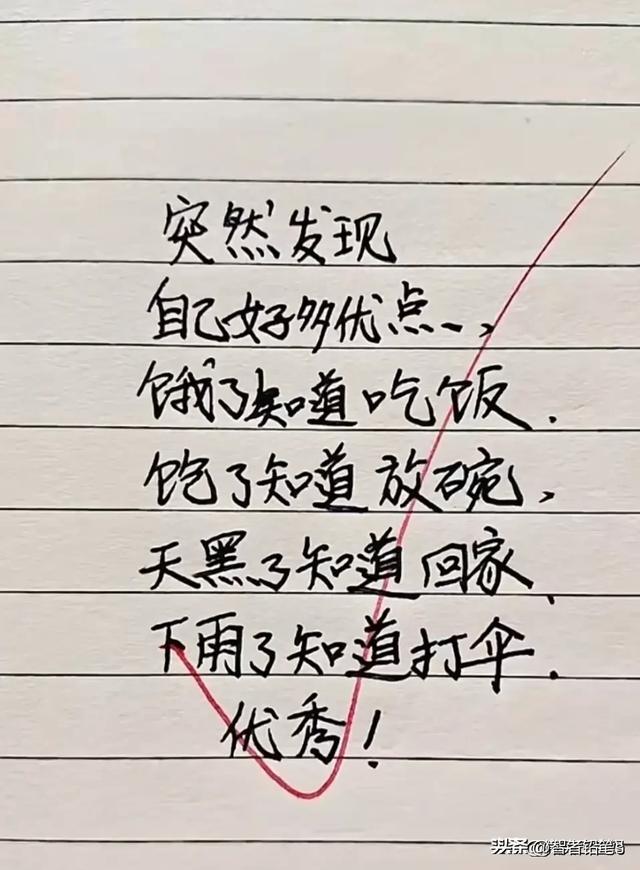 突然发现
自己好多优点、
饿了知道吃饭.
饱了知道放碗、
天黑了知道回家.
下雨了知道打伞.
优秀!
头条@智者铅笔